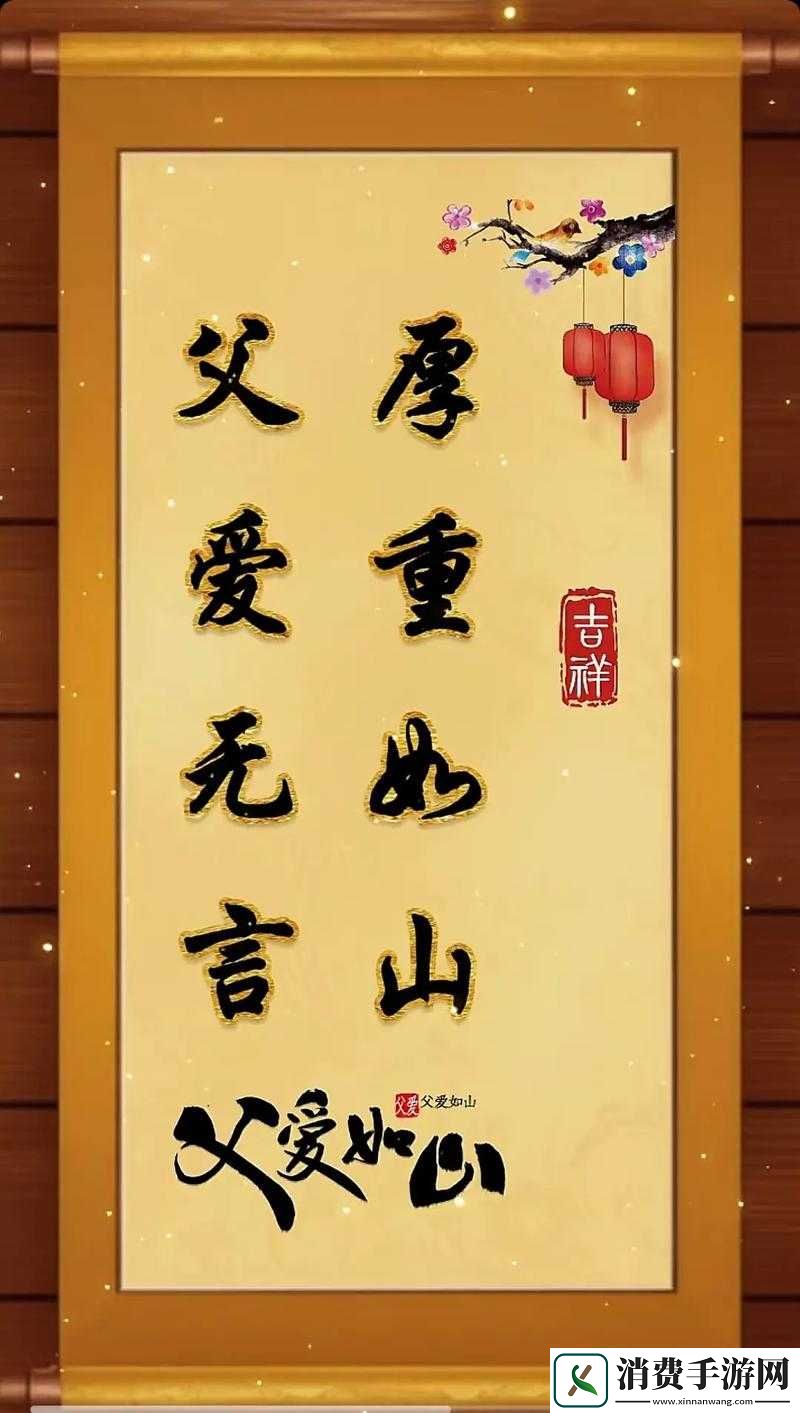 父爱无言
厚重如山
吉祥
父爱
父爱如山
父爱如山
消费手游网
www.xinnanwang.com